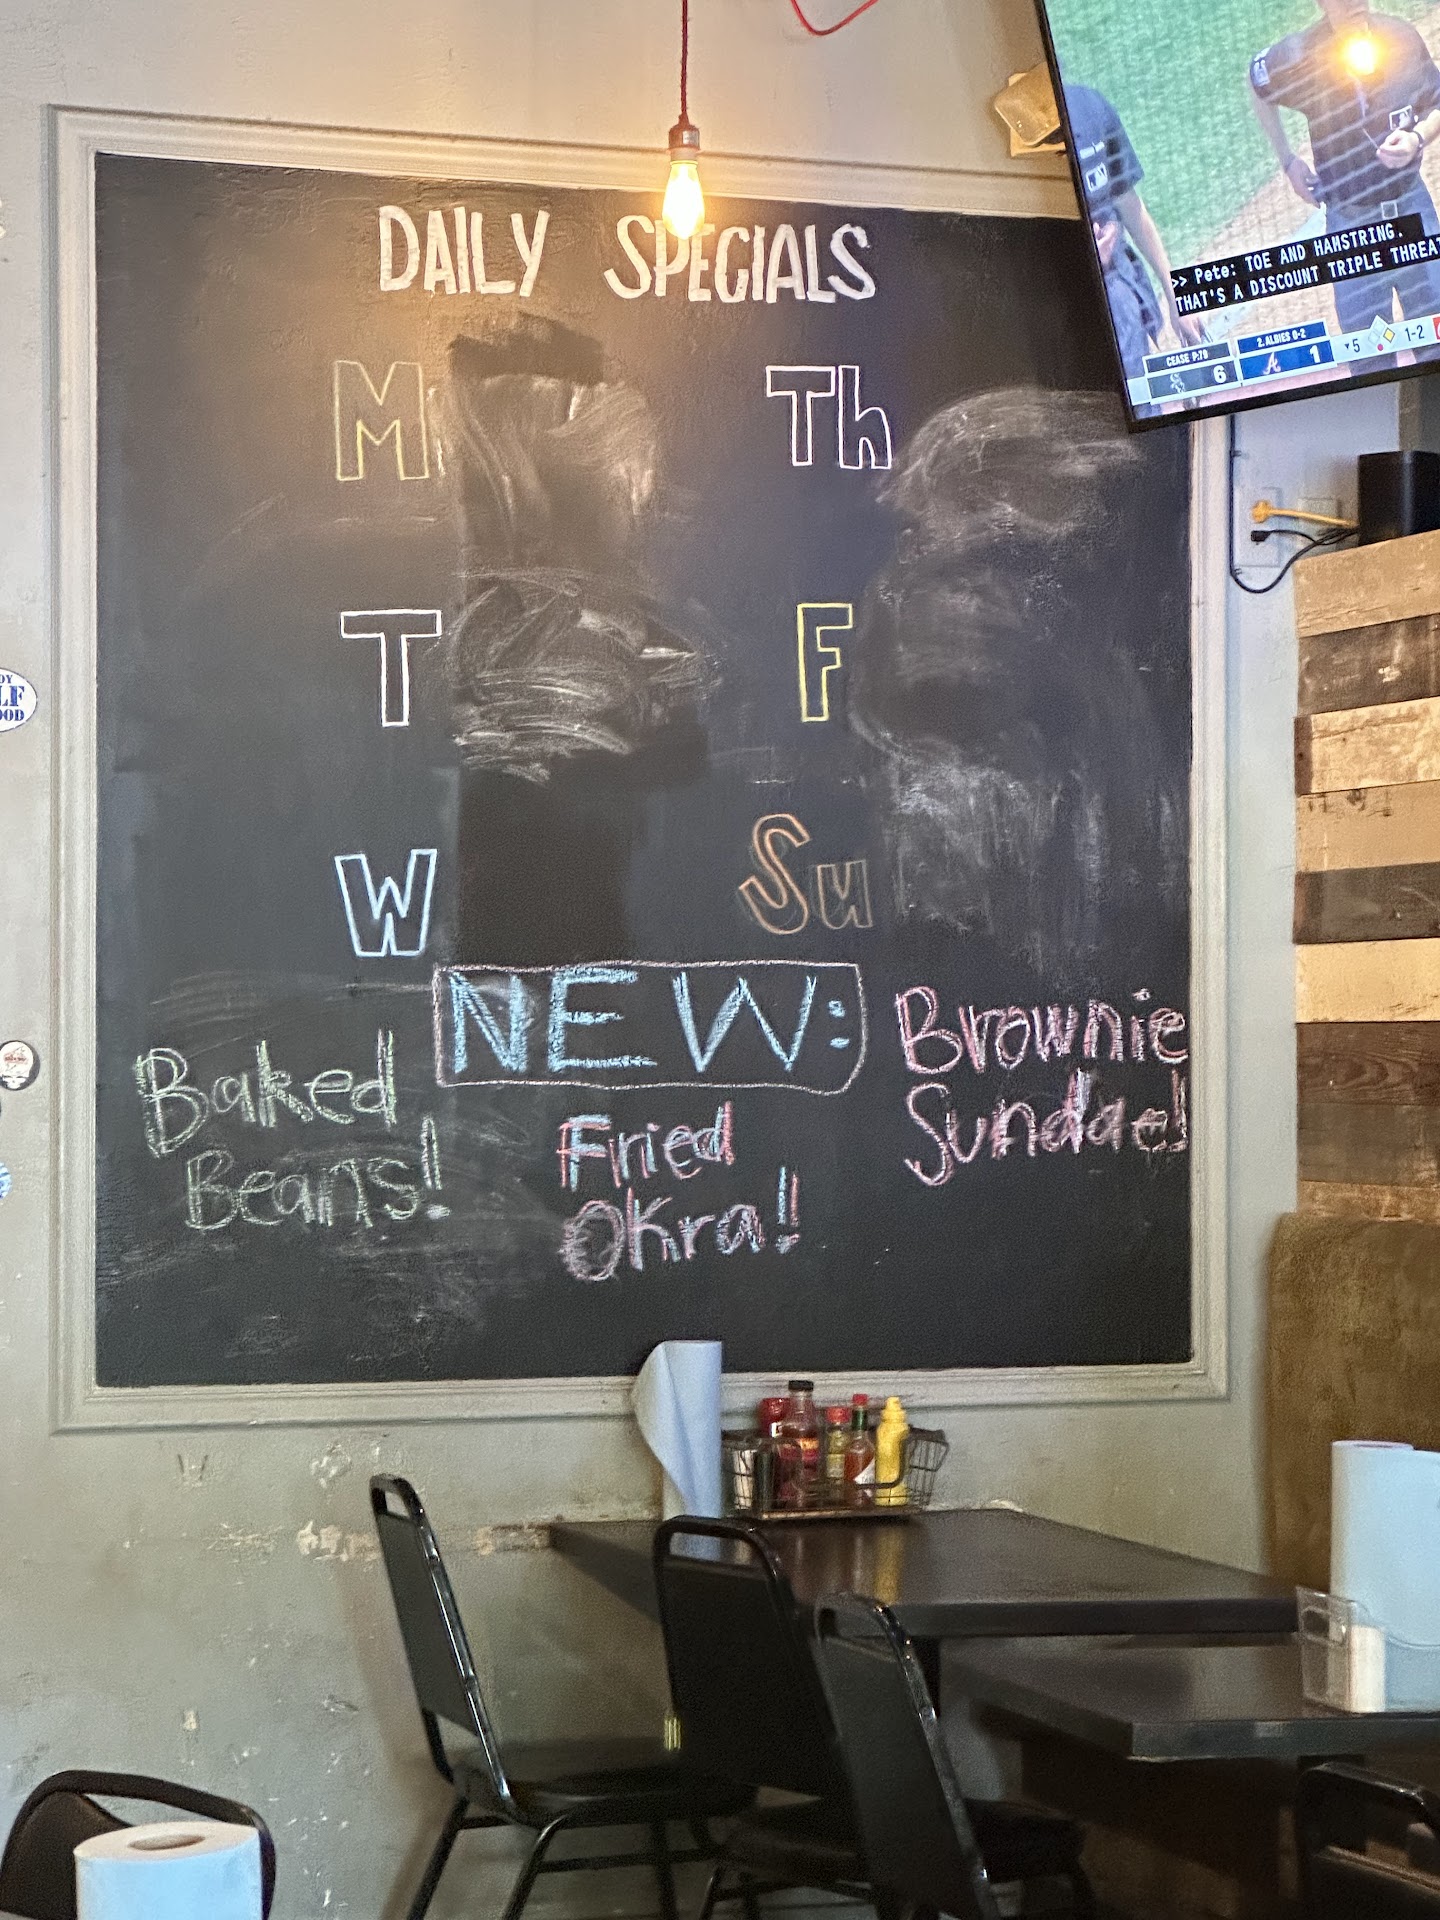 DAILY SPECIALS
M
Th
T
F
W
Su
NEW:
Baked
Beans!
Fried
Okra!
Brownie
Sundae!
>> Pete: TOE AND HAMSTRING.
THAT'S A DISCOUNT TRIPLE THREAT
CEASE P:79
6
2. ALBIES 0-2
A 1
▼5
1-2
LF
OOD